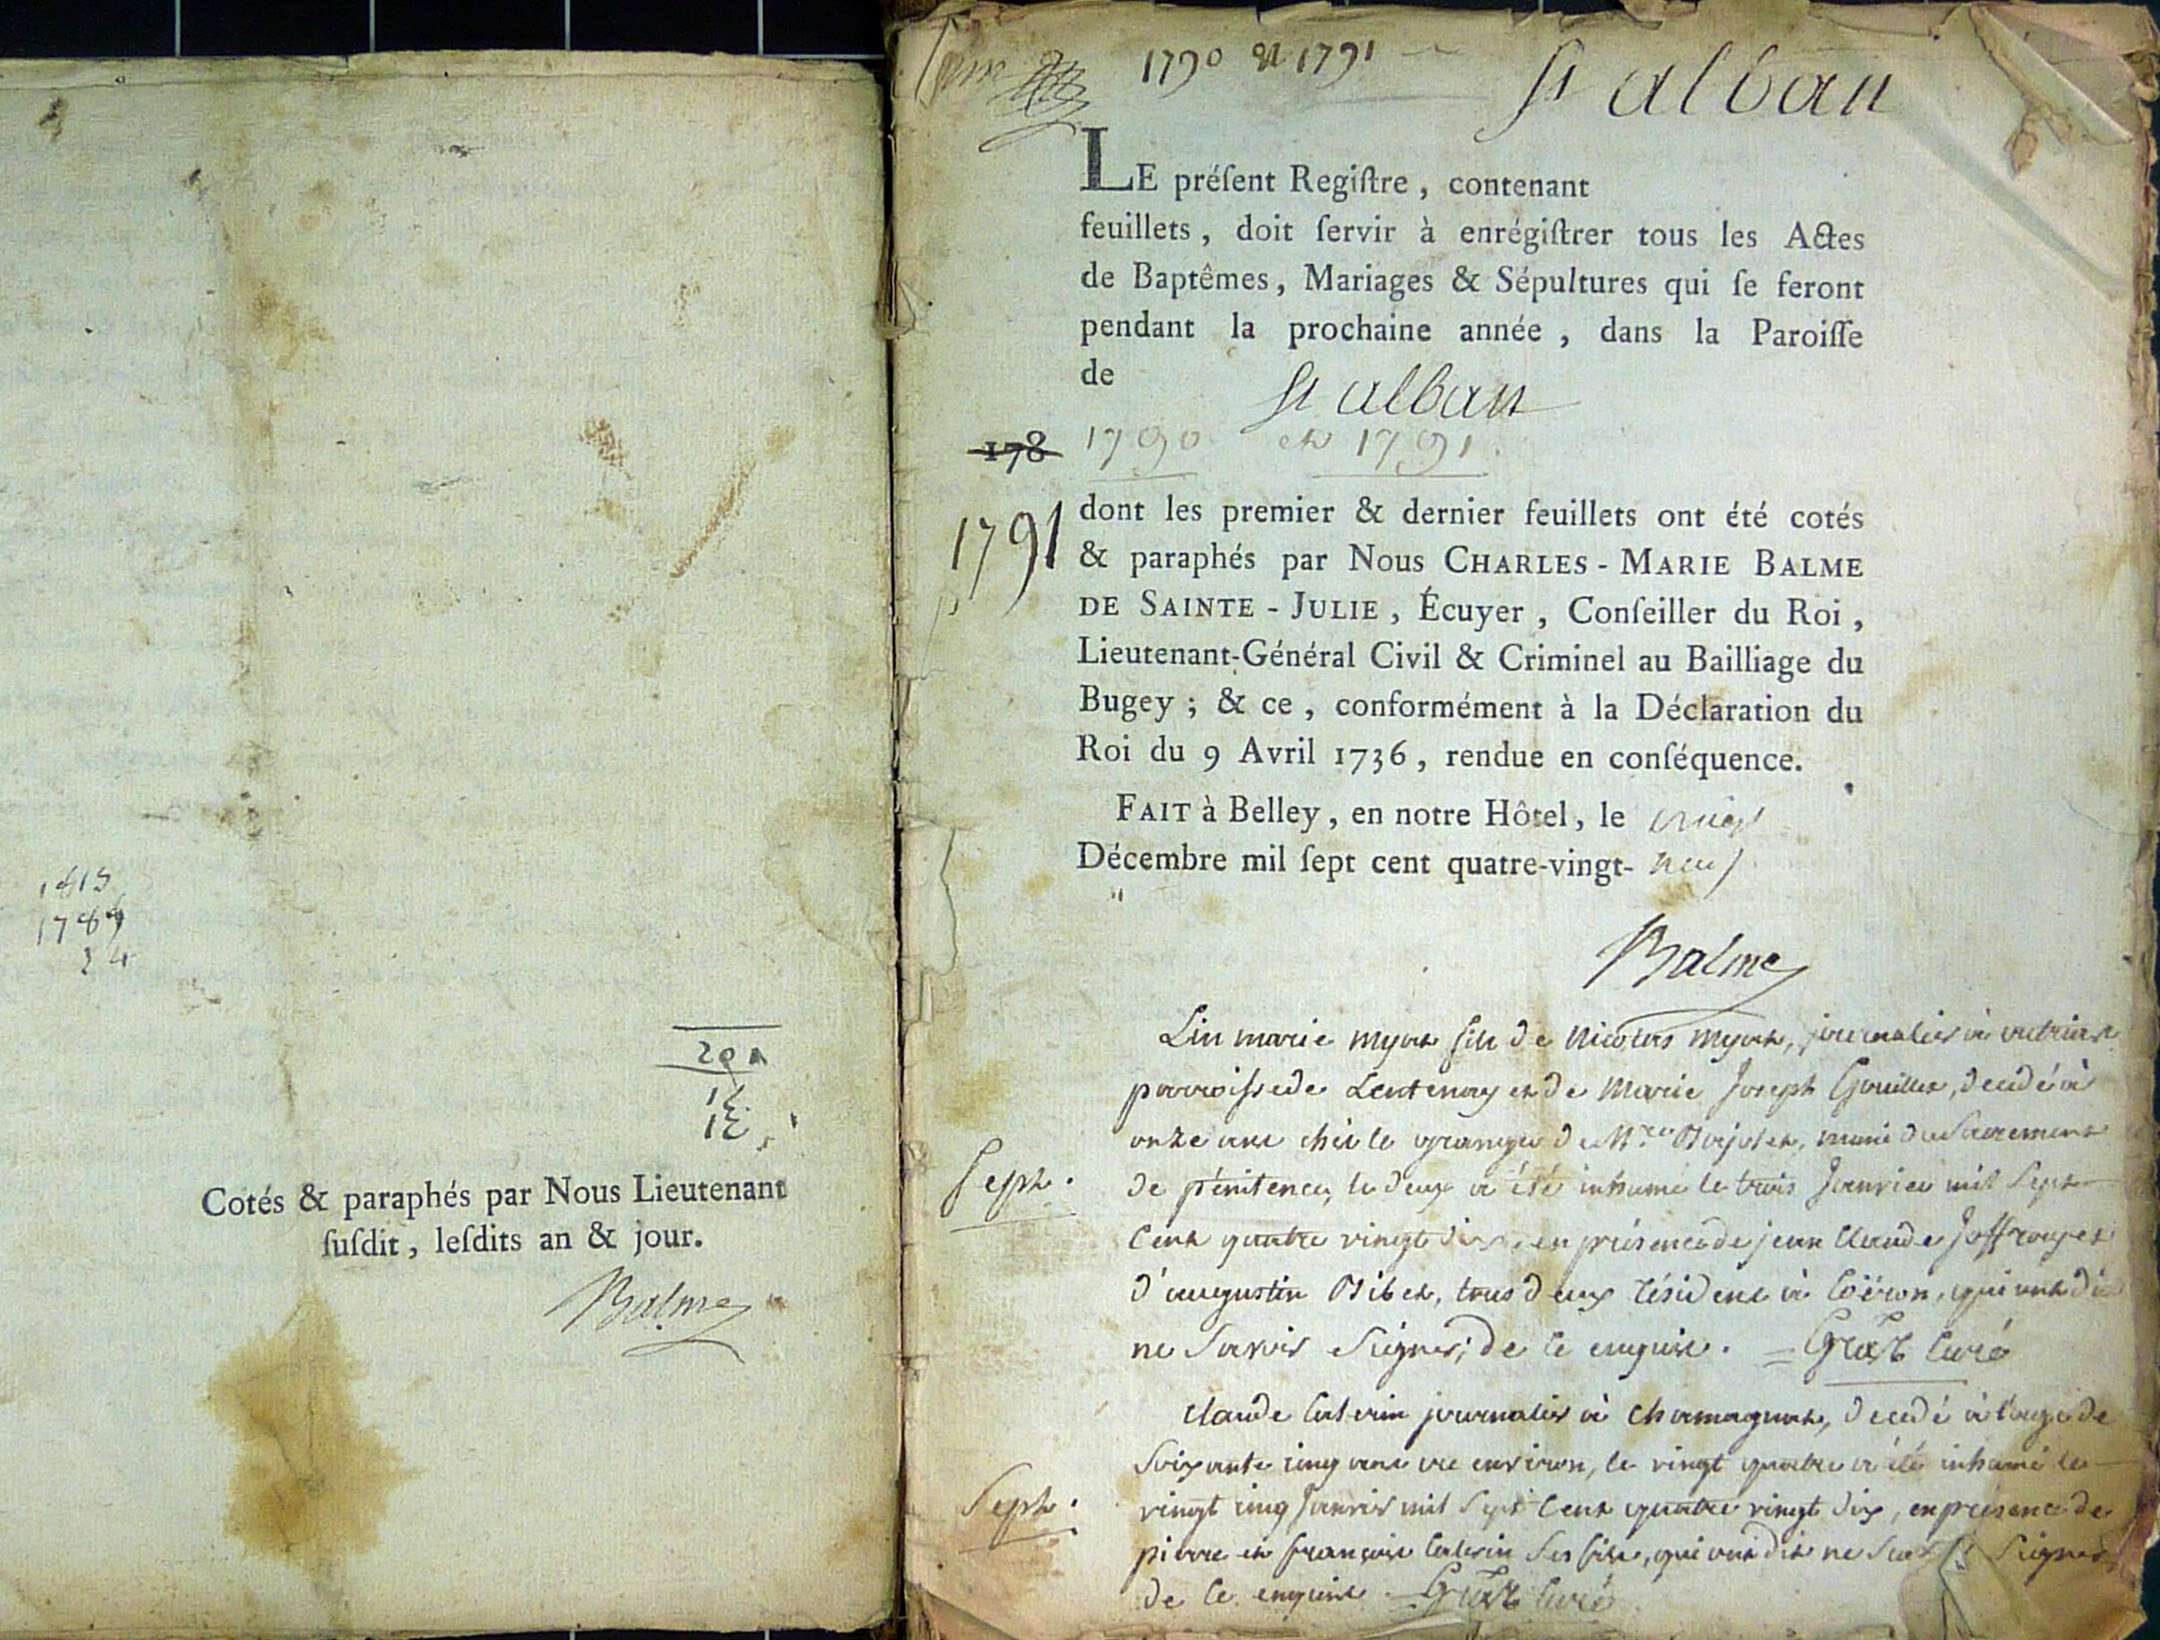 1789
24
Cotés & paraphés par Nous Lieutenant
ſuſdit, leſdits an & jour.
Balme
1790 et 1791
St alban
LE préſent Regiſtre, contenant
feuillets, doit ſervir à enrégiſtrer tous les Actes
de Baptêmes, Mariages & Sépultures qui ſe feront
pendant la prochaine année, dans la Paroiſſe
de St alban
178 1790 et 1791
1791
dont les premier & dernier feuillets ont été cotés
& paraphés par Nous CHARLES-MARIE BALME
DE SAINTE-JULIE, Écuyer, Conſeiller du Roi,
Lieutenant-Général Civil & Criminel au Bailliage du
Bugey; & ce, conformément à la Déclaration du
Roi du 9 Avril 1736, rendue en conſéquence.
FAIT à Belley, en notre Hôtel, le vingt
Décembre mil ſept cent quatre-vingt-neuf
Balme
marie myet fils de Nicolas myet, journalier à
parroisse de Lentenay et de Marie Joseph decedé à
onze ans chés le granger de muni du Sacrement
Seplt.
de pénitence, le deux a été inhumé le trois Janvier mil Sept
Cent quatre vingt dix, en présence de jean Claude Joffray et
d'augustin Bibet, tous deux résident à Coëron, qui ont dit
ne Savoir Signer, de ce enquis. curé
Claude Caterin journalier à Chamagnat, decedé à l'age de
Soixante cinq ans ou environ, le vingt quatre a été inhumé le
Seplt.
vingt cinq Janvier mil Sept Cent quatre vingt dix, en présence de
pierre et françois Caterin Ses fils, qui ont dit ne Signer
de ce enquis curé